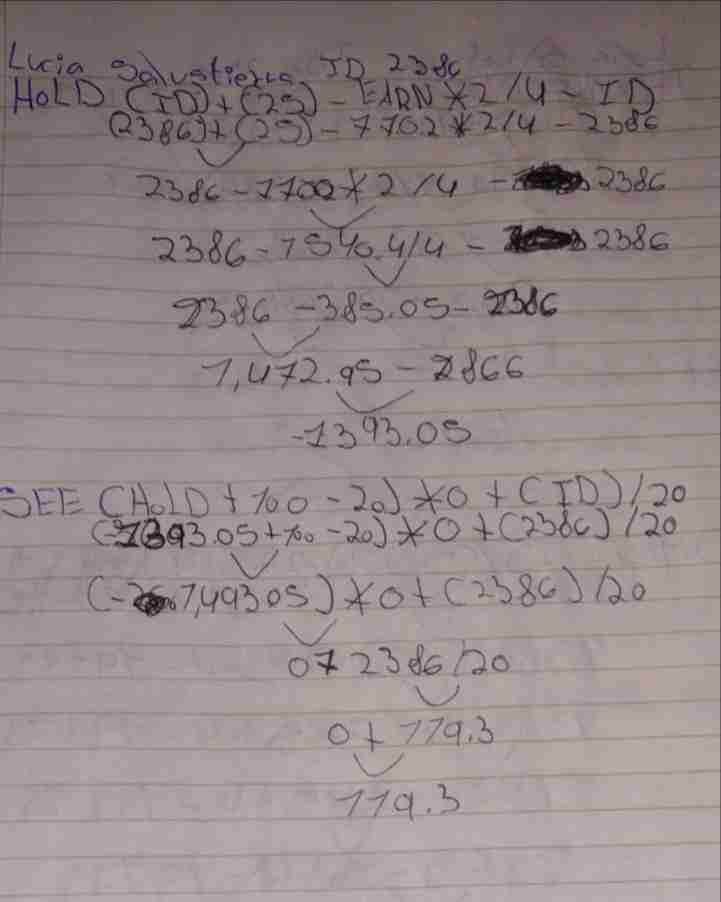 Lucia Salvatierra ID 2386
HOLD (ID)+(25) - EARN*2/4 - ID
(2386)+(25) - 770.2*2/4 - 2386
2386 - 770.2*2/4 - 2386
2386 - 1540.4/4 - 2386
2386 - 385.05 - 2386
1,472.95 - 2866
-1393.05
SEE (HOLD + 100 - 20) *0 + (ID) /20
(-1393.05+100 - 20) *0 + (2386) /20
(-1,493.05) *0 + (2386) /20
0+ 2386/20
0+ 119.3
119.3